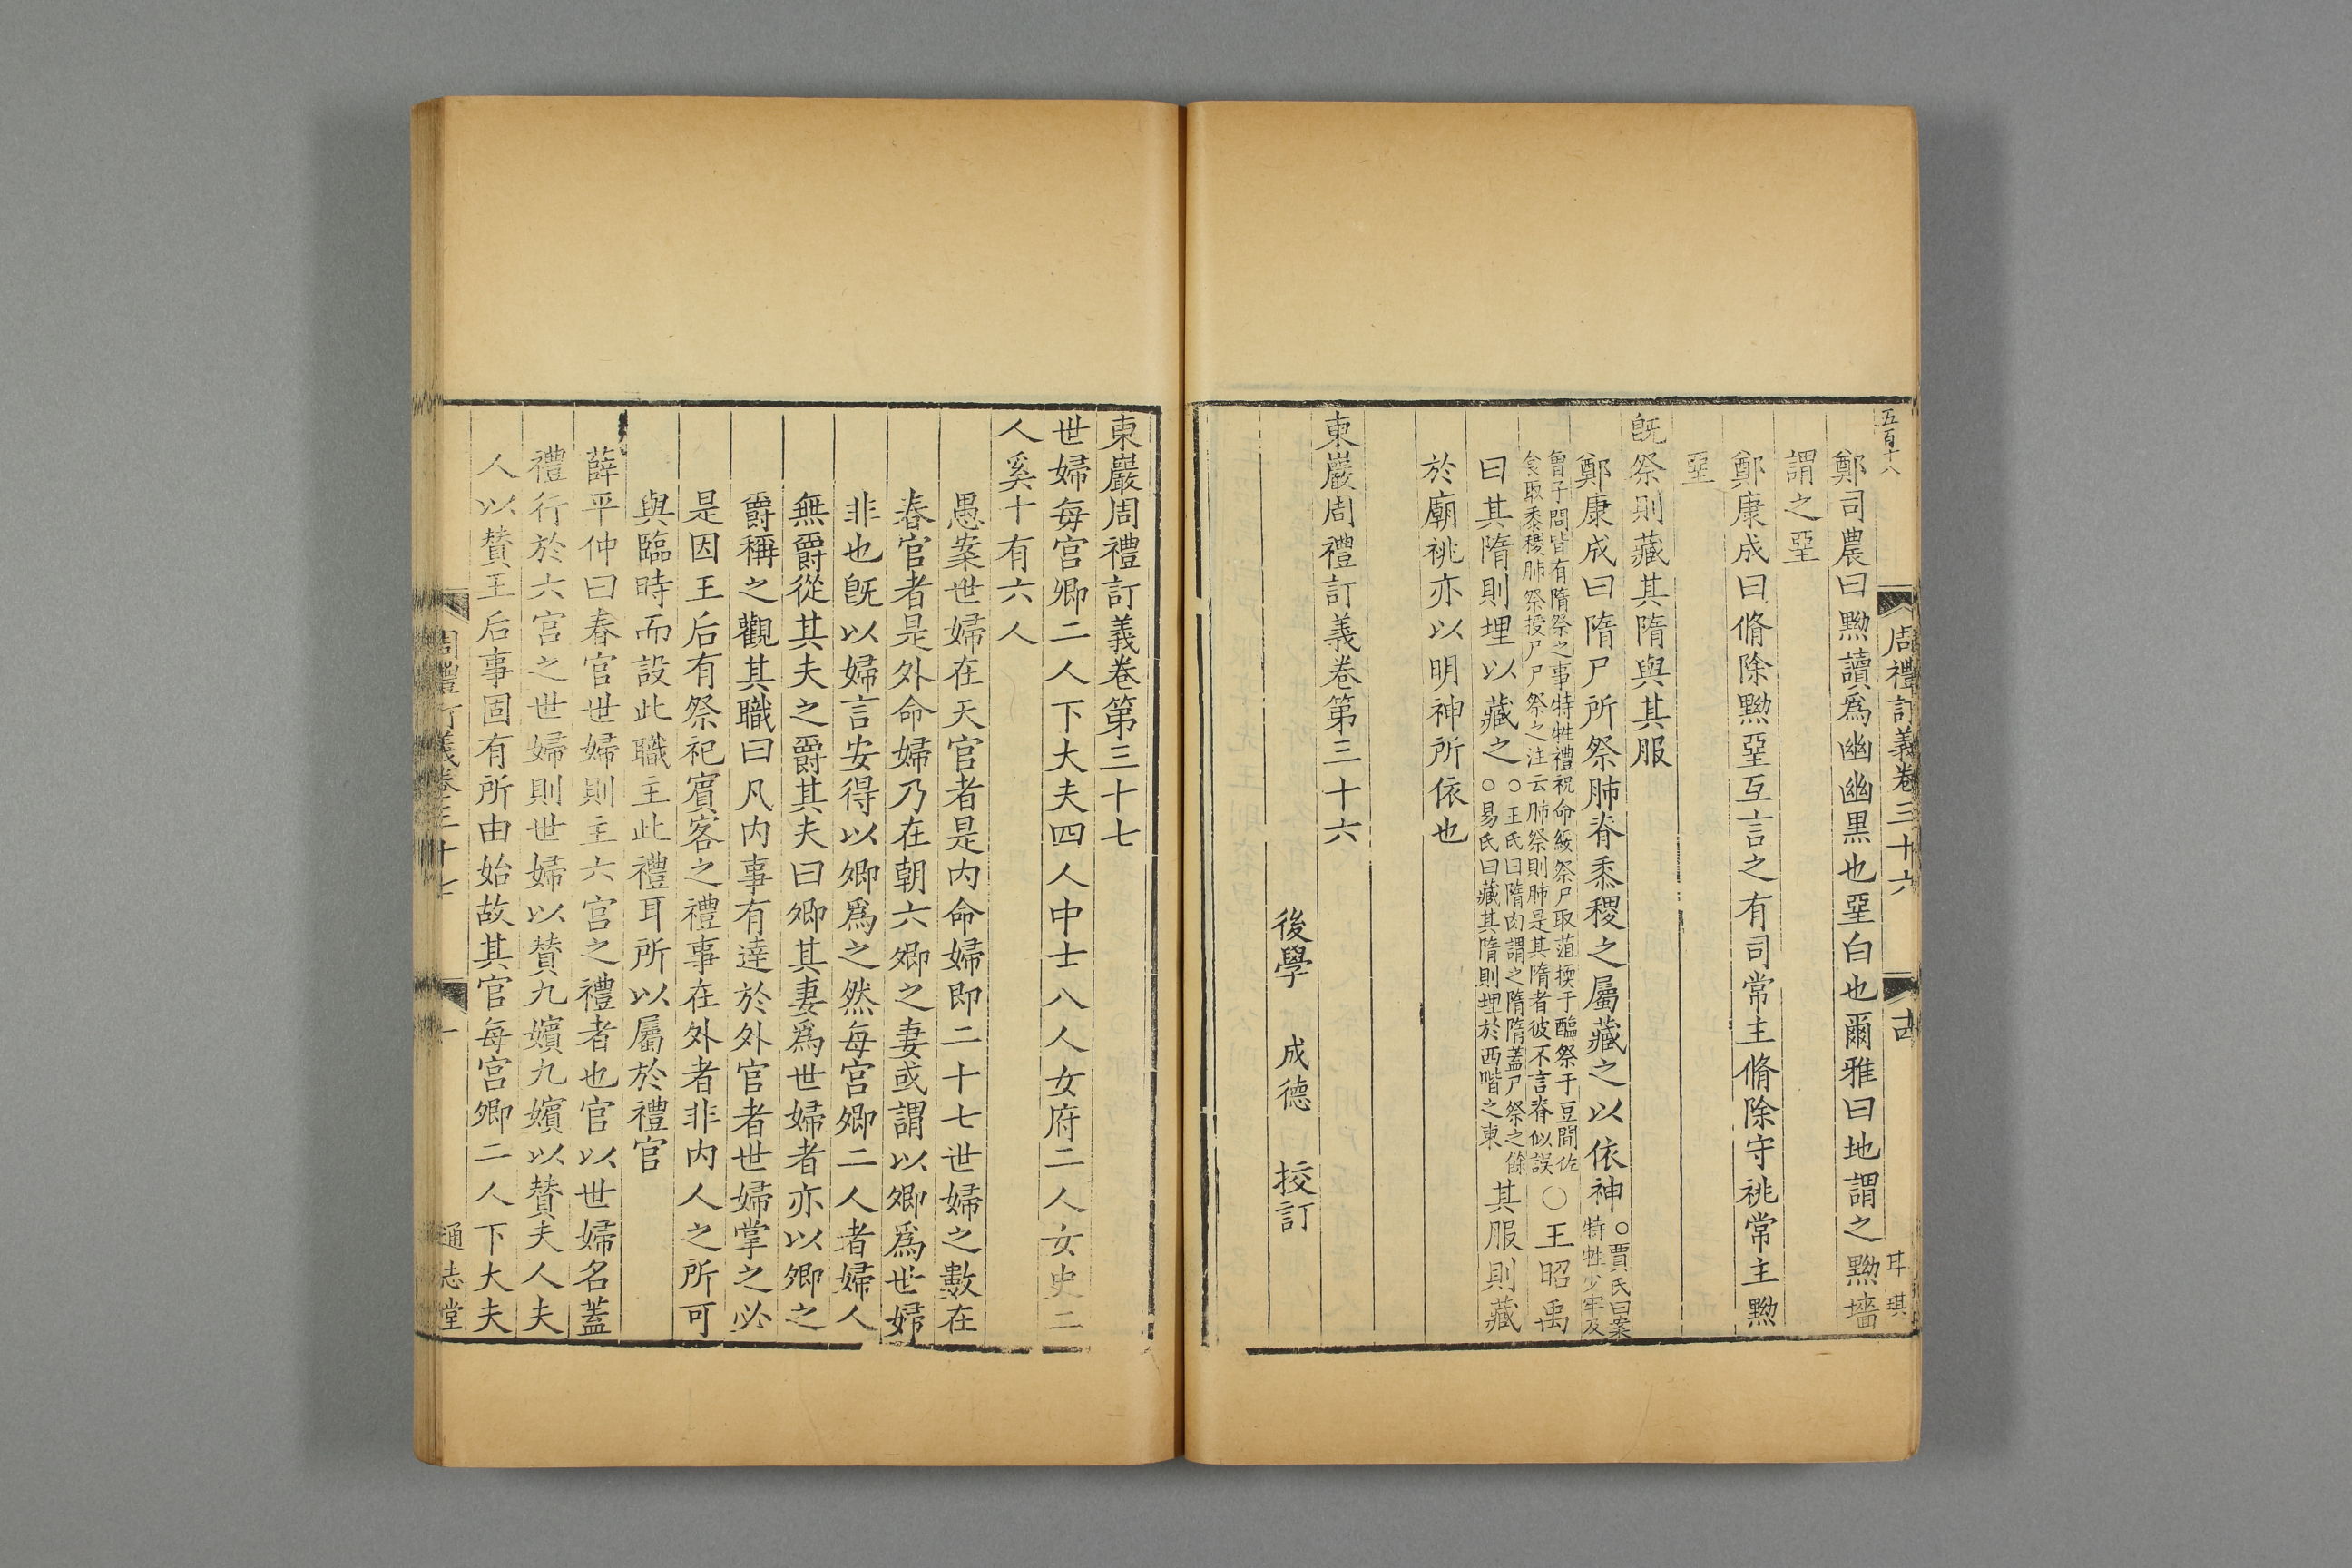 五百十八
周禮訂義卷三十六
古
耳琪
鄭司農曰黝讀爲幽幽黑也堊白也爾雅曰地謂之黝墻
謂之堊
鄭康成曰脩除黝堊互言之有司常主脩除守祧常主黝
堊
旣祭則藏其隋與其服
鄭康成曰隋尸所祭肺脊黍稷之屬藏之以依神○賈氏曰案特牲少牢及
曾子問皆有隋祭之事特牲禮祝命綏祭尸取菹擩于醢祭于豆間佐食取黍稷肺祭授尸尸祭之注云肺祭則肺是其隋者彼不言脊似誤○王昭禹
曰其隋則埋以藏之○王氏曰隋肉謂之隋隋蓋尸祭之餘○易氏曰藏其隋則埋於西階之東其服則藏
於廟祧亦以明神所依也
東巖周禮訂義卷第三十六
後學 成德 挍訂
東巖周禮訂義卷第三十七
世婦每宮卿二人下大夫四人中士八人女府二人女史二
人奚十有六人
愚案世婦在天官者是内命婦即二十七世婦之數在
春官者是外命婦乃在朝六卿之妻或謂以卿爲世婦
非也旣以婦言安得以卿爲之然每宮卿二人者婦人
無爵從其夫之爵其夫曰卿其妻爲世婦者亦以卿之
爵稱之觀其職曰凡内事有達於外官者世婦掌之必
是因王后有祭祀賓客之禮事在外者非内人之所可
與臨時而設此職主此禮耳所以屬於禮官
薛平仲曰春官世婦則主六宮之禮者也官以世婦名蓋
禮行於六宮之世婦則世婦以贊九嬪九嬪以贊夫人夫
人以贊王后事固有所由始故其官每宮卿二人下大夫
周禮訂義卷三十七
一
通志堂